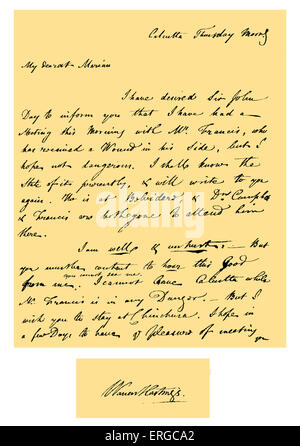 Calcutta Thursday Morng
My dearest Marian
I have desired Sir John
Day to inform you that I have had a
Meeting this Morning with Mr. Francis, who
has received a Wound in his Side, but I
hope not dangerous. I shall know the
State of it presently, & will write to you
again. He is at Belvidere, & Dr. Campbell
& Francis are both gone to attend him
there.
I am well & unhurt. – But
you must be content to hear this Good
from me. you cannot see me. I cannot leave Calcutta while
Mr. Francis is in any Danger. – But I
wish you to stay at Chinchura. I hope in
a few Days to have ye Pleasure of meeting
you
Warren Hastings.
alamy
ERGCA2